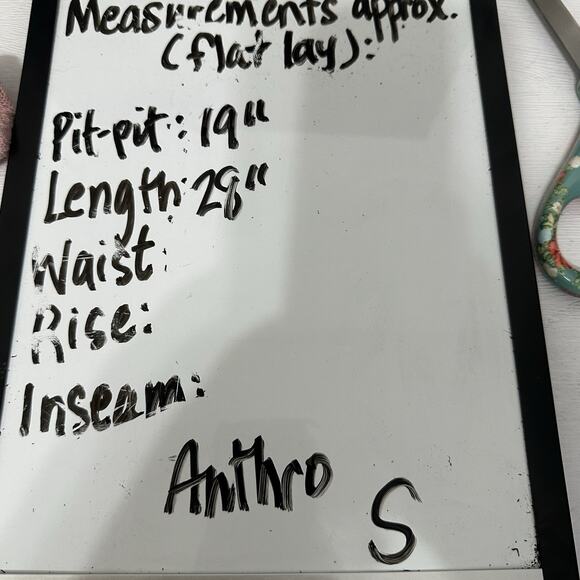 Measurements approx.
(flat lay):
Pit-pit: 19"
Length: 28"
Waist:
Rise:
Inseam:
Anthro
S